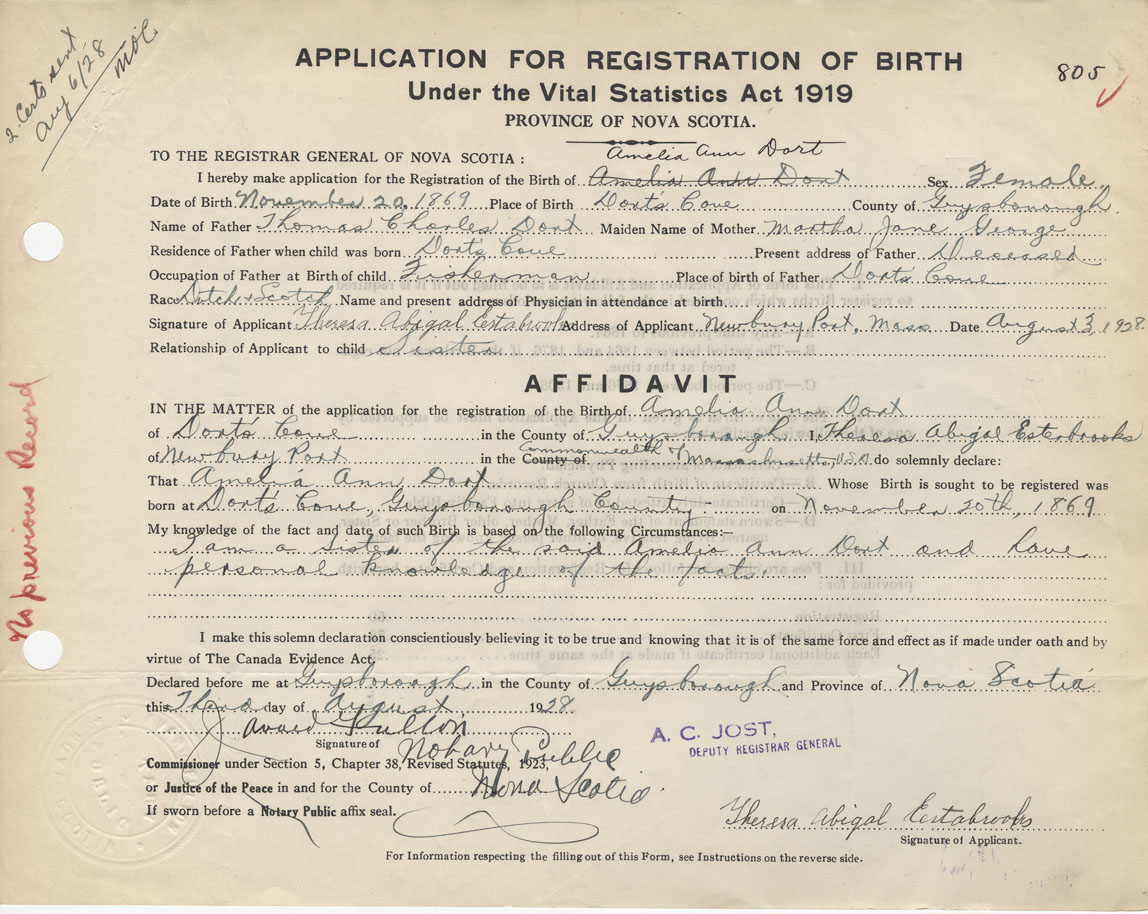 2 Certs sent
Aug 6/28
MOC
APPLICATION FOR REGISTRATION OF BIRTH
805
Under the Vital Statistics Act 1919
PROVINCE OF NOVA SCOTIA.
TO THE REGISTRAR GENERAL OF NOVA SCOTIA: Amelia Ann Dort
I hereby make application for the Registration of the Birth of Amelia Ann Dort Sex Female
Date of Birth November 20, 1869 Place of Birth Dort's Cove County of Guysborough
Name of Father Thomas Charles Dort Maiden Name of Mother Martha Jane George
Residence of Father when child was born Dort's Cove Present address of Father Deceased
Occupation of Father at Birth of child Fisherman Place of birth of Father Dort's Cove
Race Dutch & Scotch Name and present address of Physician in attendance at birth
Signature of Applicant Theresa Abigal Estabrooks Address of Applicant Newbury Port, Mass Date August 3, 1928.
Relationship of Applicant to child Sister
AFFIDAVIT
IN THE MATTER of the application for the registration of the Birth of Amelia Ann Dort
of Dort's Cove in the County of Guysborough I, Theresa Abigal Esterbrooks
of Newbury Port in the County of Commonwealth of Massachusetts, U.S.A. do solemnly declare:
That Amelia Ann Dort Whose Birth is sought to be registered was
born at Dort's Cove, Guysborough County on November 20th, 1869
My knowledge of the fact and date of such Birth is based on the following Circumstances:—
I am a sister of the said Amelia Ann Dort and have
personal knowledge of the facts.
No previous Record
I make this solemn declaration conscientiously believing it to be true and knowing that it is of the same force and effect as if made under oath and by
virtue of The Canada Evidence Act.
Declared before me at Guysborough in the County of Guysborough and Province of Nova Scotia
this Third day of August 1928.
Fulton
Signature of Notary Public
A. C. JOST,
DEPUTY REGISTRAR GENERAL
Commissioner under Section 5, Chapter 38, Revised Statutes, 1923,
or Justice of the Peace in and for the County of Nova Scotia.
If sworn before a Notary Public affix seal.
Theresa Abigal Estabrooks
Signature of Applicant.
For Information respecting the filling out of this Form, see Instructions on the reverse side.